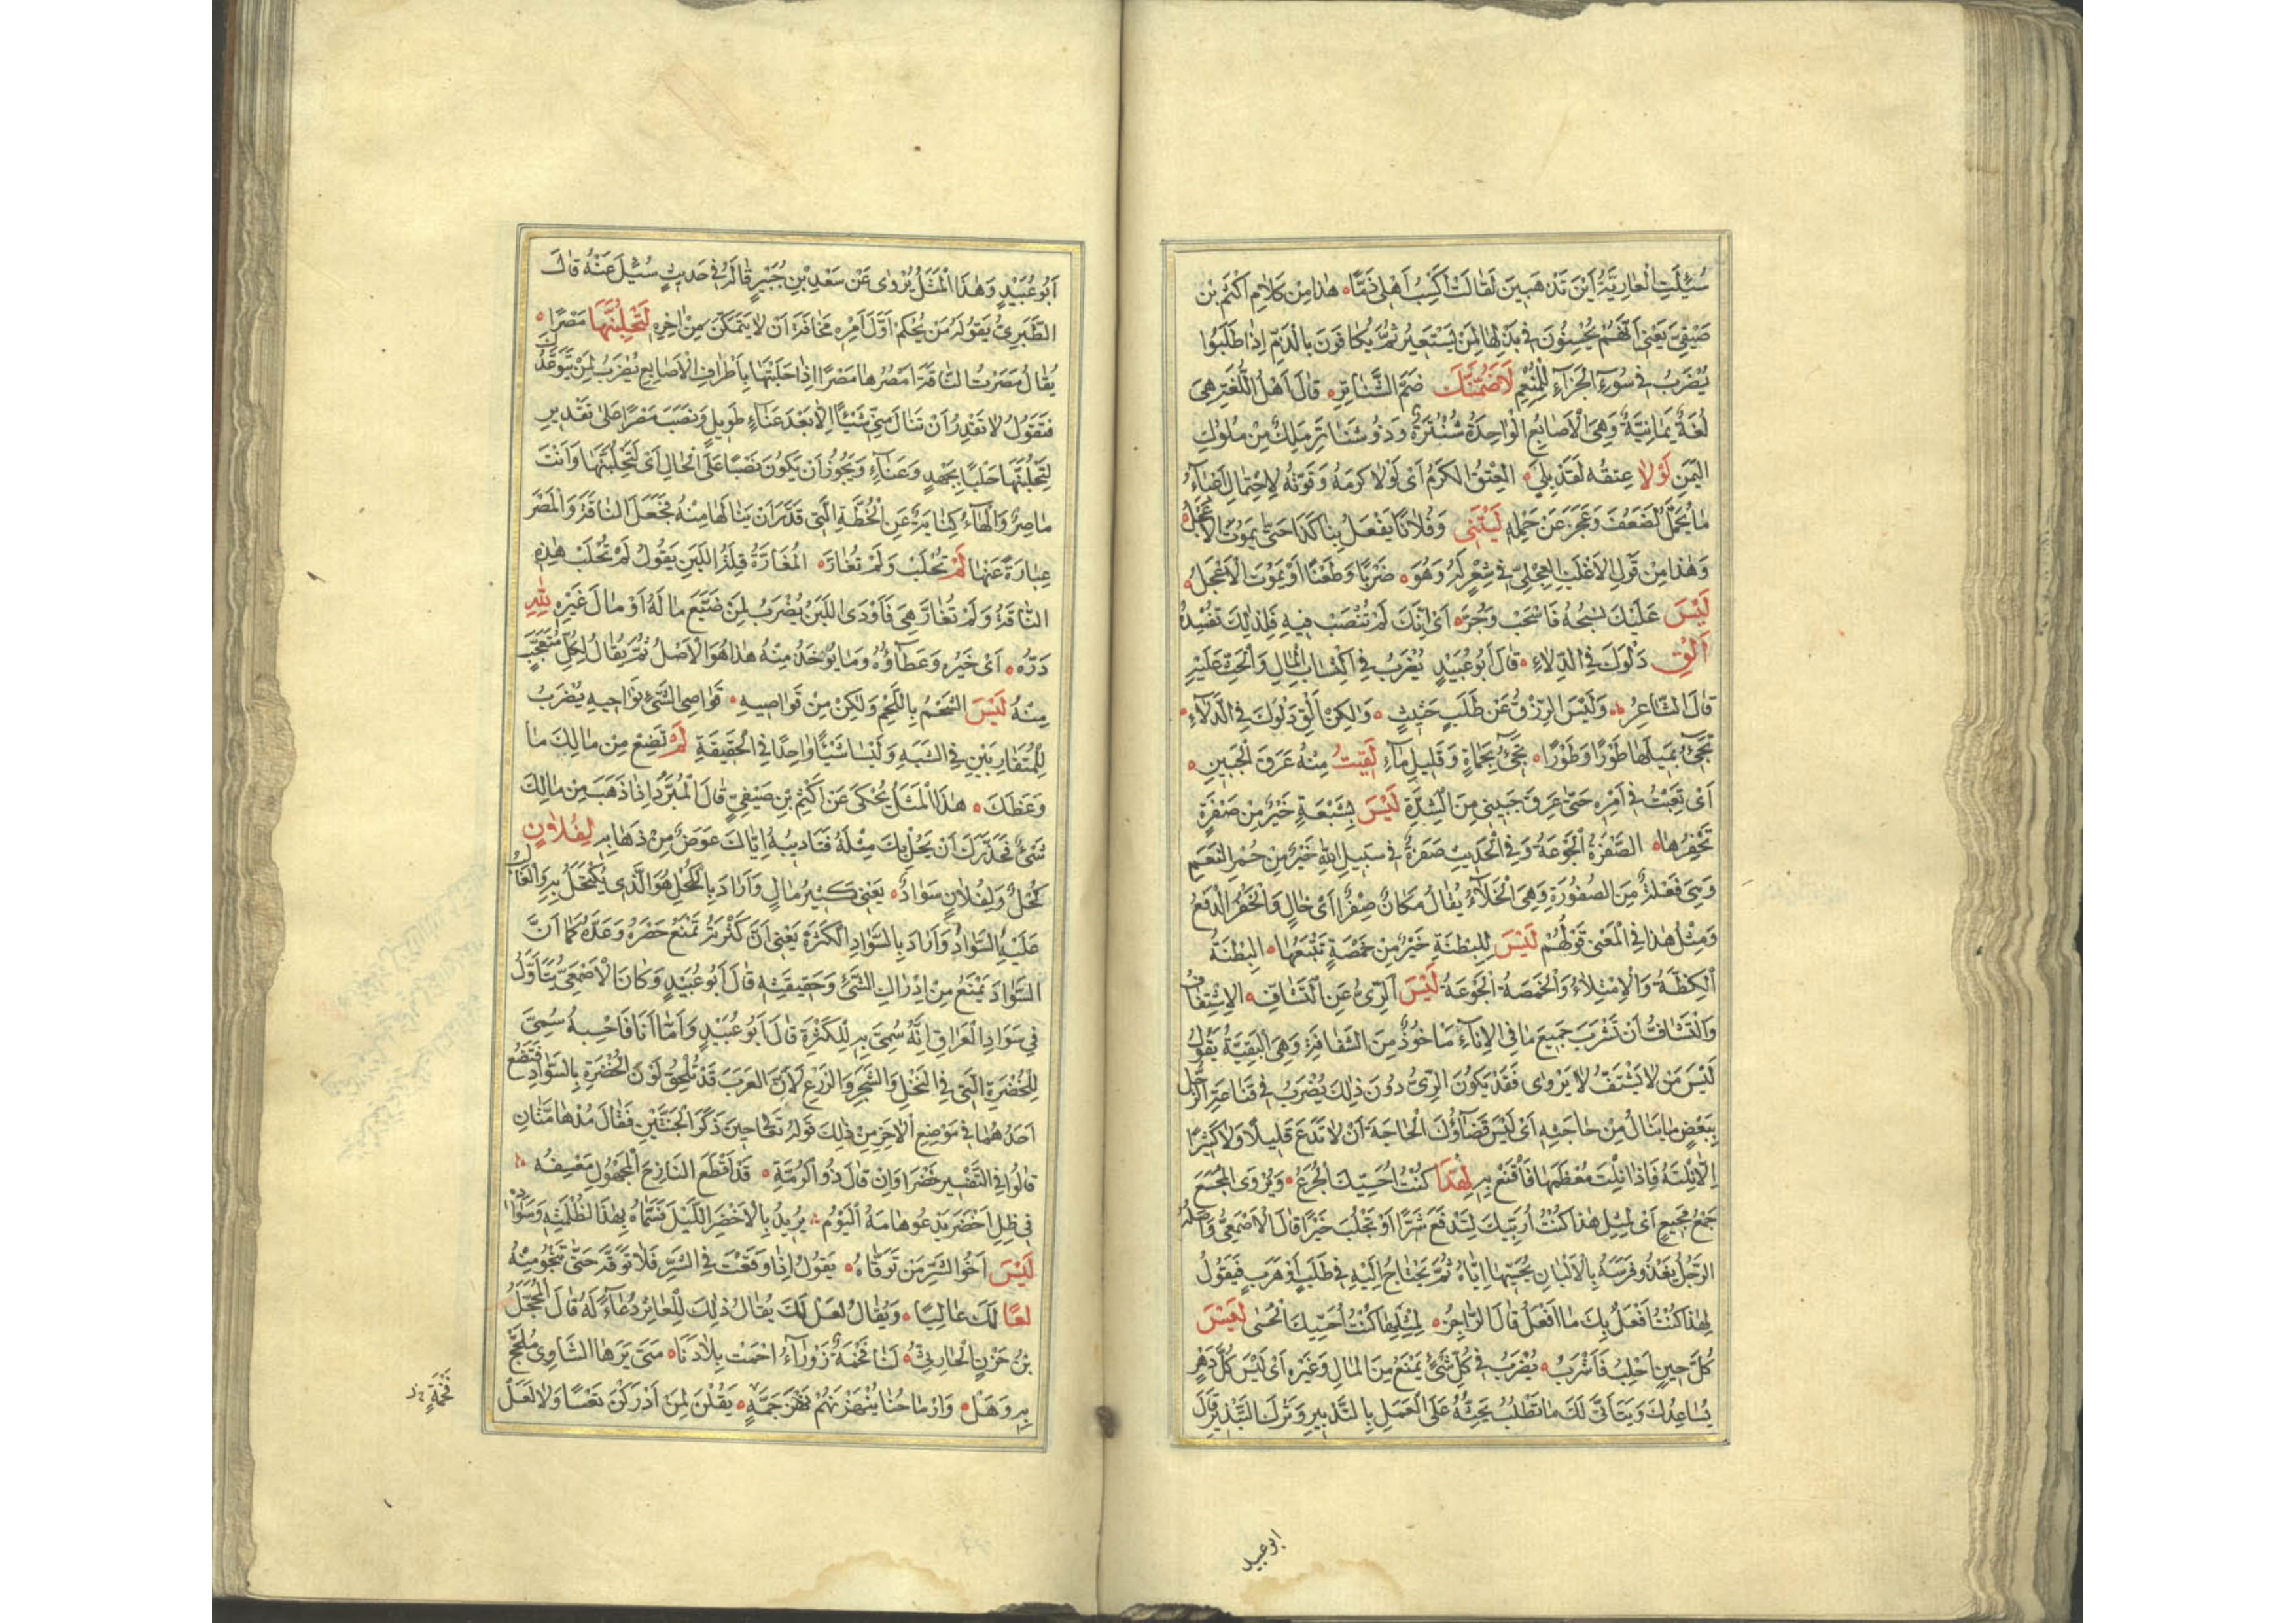 سُئِلَتِ الْعَارِيَةُ اَيْنَ تَذْهَبِينَ لَقَالَتْ اَكْسِبُ اَهْلِى ذَمًّا هٰذا مِنْ كَلَامِ اَكْثَمَ بْنِ
صَيْفِىّ يَعْنِى اَنَّهُمْ يُحْسِنُونَ فِى بَذْلِهَا لِمَنْ يَسْتَعِيرُ ثُمَّ يُكَافَوْنَ بِالذَّمِّ اِذَا طَلَبُوا
يُضْرَبُ فِى سُوءِ الْجَزَآءِ لِلْمُنْعِمِ لَاَضُمَّنَّكَ ضَمَّ الشَّنَاتِرِ قَالَ اَهْلُ اللُّغَةِ هِىَ
لُغَةٌ يَمَانِيَّةٌ وَهِىَ الْاَصَابِعُ الْوَاحِدَةُ شُنْتُرَةٌ وَذُو شَنَاتِرَ مَلِكٌ مِنْ مُلُوكِ
الْيَمَنِ لَوْلَا عِتْقُهُ لَقَدْ بَلِىَ الْعِتْقُ الْكَرَمُ اَىْ لَوْلَا كَرَمُهُ وَقُوَّتُهُ لِاحْتِمَالِ اَعْبَآءِ
مَا يُحَمَّلُ لَضَعُفَ وَعَجَزَ عَنْ حَمْلِهِ لَيْتَنِى وَفُلَانًا يَفْعَلُ بِنَا كَذَا حَتّٰى يَمُوتَ الْاَعْجَلُ
وَهٰذا مِنْ قَوْلِ الْاَغْلَبِ الْعِجْلِىّ فِى شِعْرٍ لَهُ وَهُوَ ضَرْبًا وَطَعْنًا اَوْ يَمُوتَ الْاَعْجَلُ
لَيْسَ عَلَيْكَ نَسْجُهُ فَاسْحَبْ وَجُرَّ اَىْ اِنَّكَ لَمْ تَنْصَبْ فِيهِ فَلِذٰلِكَ تُفْسِدُهُ
اَلْقِ دَلْوَكَ فِى الدِّلَاءِ قَالَ اَبُو عُبَيْدٍ يُضْرَبُ فِى اكْتِسَابِ الْمَالِ وَالْحَثِّ عَلَيْهِ
قَالَ الشَّاعِرُ وَلَيْسَ الرِّزْقُ عَنْ طَلَبٍ حَثِيثٍ وَلٰكِنْ اَلْقِ دَلْوَكَ فِى الدِّلَآءِ
تَجِىْءُ بِمَيْلِهَا طَوْرًا وَطَوْرًا تَجِىْءُ بِحَمْاَةٍ وَقَلِيلِ مَآءِ لَقِيتُ مِنْهُ عَرَقَ الْجَبِينِ
اَىْ تَعِبْتُ فِى اَمْرِهِ حَتّٰى عَرِقَ جَبِينِى مِنَ الشِّدَّةِ لَيْسَ لِشَبْعَةٍ خَيْرٌ مِنْ صَفْرَةٍ
تَحْفِزُهَا الصَّفْرَةُ الْجَوْعَةُ وَفِى الْحَدِيثِ صَفْرَةٌ فِى سَبِيلِ اللّٰهِ خَيْرٌ مِنْ حُمْرِ النَّعَمِ
وَهِىَ فَعْلَةٌ مِنَ الصُّفُورَةِ وَهِىَ الْخَلَآءُ يُقَالُ مَكَانٌ صِفْرٌ اَىْ خَالٍ وَالْحَفْزُ الدَّفْعُ
وَمِثْلُ هٰذا فِى الْمَعْنٰى قَوْلُهُمْ لَيْسَ لِلْبِطْنَةِ خَيْرٌ مِنْ خَمْصَةٍ تَتْبَعُهَا الْبِطْنَةُ
الْكِظَّةُ وَالْاِمْتِلَاءُ وَالْخَمْصَةُ الْجَوْعَةُ لَيْسَ الرِّىُّ عَنِ التَّشَافِّ الْاِشْتِفَافُ
وَالتَّشَافُّ اَنْ تَشْرَبَ جَمِيعَ مَا فِى الْاِنَآءِ مَاْخُوذٌ مِنَ الشُّفَافَةِ وَهِىَ الْبَقِيَّةُ يَقُولُ
لَيْسَ مَنْ لَا يَشْتَفُّ لَا يَرْوٰى فَقَدْ يَكُونُ الرِّىُّ دُونَ ذٰلِكَ يُضْرَبُ فِى قَنَاعَةِ الرَّجُلِ
بِبَعْضِ مَا يَنَالُ مِنْ حَاجَتِهِ اَىْ لَيْسَ قَضَآؤُكَ الْحَاجَةَ اَنْ لَا تَدَعَ قَلِيلًا وَلَا كَثِيرًا
اِلَّا نِلْتَهُ فَاِذَا نِلْتَ مُعْظَمَهَا فَاقْنَعْ بِهِ لِهٰذَا كُنْتُ اُحَسِّيكَ الْجُرَعَ وَيُرْوَى الْمُجَعَ
جَمْعُ مَجِيعٍ اَىْ لِمِثْلِ هٰذا كُنْتُ اُرَبِّيكَ لِتَدْفَعَ شَرًّا اَوْ تَجْلُبَ خَيْرًا قَالَ الْاَصْمَعِىُّ وَاَصْلُهُ
الرَّجُلُ يَغْذُو فَرَسَهُ بِالْاَلْبَانِ يُحَسِّيهَا اِيَّاهُ ثُمَّ يَحْتَاجُ اِلَيْهِ فِى طَلَبٍ اَوْ هَرَبٍ فَيَقُولُ
لِهٰذا كُنْتُ اَفْعَلُ بِكَ مَا اَفْعَلُ قَالَ الرَّاجِزُ لِمِثْلِهَا كُنْتُ اُحَسِّيكَ الْحُسٰى لَيْسَ
كُلَّ حِينٍ اَحْلِبُ فَاَشْرَبُ يُضْرَبُ فِى كُلِّ شَىْءٍ يُمْنَعُ مِنَ الْمَالِ وَغَيْرِهِ اَىْ لَيْسَ كُلُّ دَهْرٍ
يُسَاعِدُكَ وَيَتَاَتّٰى لَكَ مَا تَطْلُبُ يَحُثُّهُ عَلَى الْعَمَلِ بِالتَّدْبِيرِ وَتَرْكِ التَّبْذِيرِ قَالَ
ابو عبيد
اَبُو عُبَيْدٍ وَهٰذَا الْمَثَلُ يُرْوٰى عَنْ سَعْدِ بْنِ جُبَيْرٍ قَالَهُ فِى حَدِيثٍ سُئِلَ عَنْهُ قَالَ
الطَّبَرِىُّ يَقُولُهُ مَنْ يُحْكِمُ اَوَّلَ اَمْرِهِ مَخَافَةَ اَنْ لَا يَتَمَكَّنَ مِنْ اٰخِرِهِ لَتَحْلِبَنَّهَا مَصْرًا
يُقَالُ مَصَرْتُ النَّاقَةَ اَمْصُرُهَا مَصْرًا اِذَا حَلَبْتَهَا بِاَطْرَافِ الْاَصَابِعِ يُضْرَبُ لِمَنْ يَتَوَعَّدُكَ
فَتَقُولُ لَا تَقْدِرُ اَنْ تَنَالَ مِنِّى شَيْئًا اِلَّا بَعْدَ عَنَآءٍ طَوِيلٍ وَنَصَبَ مَصْرًا عَلٰى تَقْدِيرِ
لَتَحْلُبَنَّهَا حَلْبًا بِجَهْدٍ وَعَنَآءٍ وَيَجُوزُ اَنْ يَكُونَ نَصْبًا عَلَى الْحَالِ اَىْ لَتَحْلُبَنَّهَا وَاَنْتَ
مَاصِرٌ وَالْهَآءُ كِنَايَةٌ عَنِ الْخُطَّةِ الَّتِى قَدَّرَ اَنْ يَنَالَهَا مِنْهُ فَجَعَلَ النَّاقَةَ وَالْمَصْرَ
عِبَارَةً عَنْهَا لَمْ تُحْلَبْ وَلَمْ تُغَارَّ الْمُغَارَّةُ قِلَّةُ اللَّبَنِ يَقُولُ لَمْ تُحْلَبْ هٰذِهِ
النَّاقَةُ وَلَمْ تُغَارَّ هِىَ فَاَوْدَى اللَّبَنُ يُضْرَبُ لِمَنْ ضَيَّعَ مَالَهُ اَوْ مَالَ غَيْرِهِ لِلّٰهِ
دَرُّهُ اَىْ خَيْرُهُ وَعَطَآؤُهُ وَمَا يُؤْخَذُ مِنْهُ هٰذا هُوَ الْاَصْلُ ثُمَّ يُقَالُ لِكُلِّ مُتَعَجَّبٍ
مِنْهُ لَيْسَ الشَّحْمُ بِاللَّحْمِ وَلٰكِنْ مِنْ قَوَاصِيهِ قَوَاصِى الشَّىْءِ نَوَاحِيهِ يُضْرَبُ
لِلْمُتَقَارِبَيْنِ فِى الشَّبَهِ وَلَيْسَا شَيْئًا وَاحِدًا فِى الْحَقِيقَةِ لَمْ يَضِعْ مِنْ مَالِكَ مَا
وَعَظَكَ هٰذَا الْمَثَلُ يُحْكٰى عَنْ اَكْثَمَ بْنِ صَيْفِىٍّ قَالَ الْمُبَرَّدُ اِذَا ذَهَبَ مِنْ مَالِكَ
شَىْءٌ فَحَذَّرَكَ اَنْ يَحُلَّ بِكَ مِثْلُهُ فَتَاْدِيبُهُ اِيَّاكَ عِوَضٌ مِنْ ذَهَابِهِ لِفُلَانٍ
كُحْلٌ وَلِفُلَانٍ سَوَادٌ يَعْنِى كَثِيرُ مَالٍ وَاَرَادَ بِالْكُحْلِ هُوَ الَّذِى يُكْتَحَلُ بِهِ وَالْغَالِبُ
عَلَيْهِ السَّوَادُ وَاَرَادَ بِالسَّوَادِ الْكَثْرَةَ يَعْنِى اَنَّ كَثْرَتَهُ تَمْنَعُ حَصْرَهُ وَعَدَّهُ كَمَا اَنَّ
السَّوَادَ يَمْنَعُ مِنْ اِدْرَاكِ الشَّىْءِ وَحَقِيقَتِهِ قَالَ اَبُو عُبَيْدٍ وَكَانَ الْاَصْمَعِىُّ يَتَاَوَّلُ
فِى سَوَادِ الْعِرَاقِ اِنَّهُ سُمِّىَ بِهِ لِلْكَثْرَةِ قَالَ اَبُو عُبَيْدٍ وَاَمَّا اَنَا فَاَحْسِبُهُ سُمِّىَ
لِلْخُضْرَةِ الَّتِى فِى النَّخْلِ وَالشَّجَرِ وَالزَّرْعِ لِاَنَّ الْعَرَبَ قَدْ تُلْحِقُ لَوْنَ الْخُضْرَةِ بِالسَّوَادِ فَتَضَعُ
اَحَدَهُمَا فِى مَوْضِعِ الْاٰخَرِ مِنْ ذٰلِكَ قَوْلُهُ تَعَالٰى حِينَ ذَكَرَ الْجَنَّتَيْنِ فَقَالَ مُدْهَامَّتَانِ
قَالُوا فِى التَّفْسِيرِ خَضْرَاوَانِ قَالَ ذُو الرُّمَّةِ قَدْ اَقْطَعَ النَّازِحَ الْمَجْهُولَ مَعْسِفُهُ
فِى ظِلِّ اَخْضَرَ يَدْعُو هَامَهُ الْبُومُ يُرِيدُ بِالْاَخْضَرِ اللَّيْلَ فَسَمَّاهُ بِهٰذَا لِظُلْمَتِهِ وَسَوَادِهِ
لَيْسَ اَخُو الشَّرِّ مَنْ تَوَقَّاهُ يَقُولُ اِذَا وَقَعْتَ فِى الشَّرِّ فَلَا تَوَقَّهُ حَتّٰى تَنْجُوَ مِنْهُ
لَعًا لَكَ عَالِيًا وَيُقَالُ لَعَلْ لَكَ يُقَالُ ذٰلِكَ لِلْعَاثِرِ دُعَآءً لَهُ قَالَ الْمُخَبَّلُ
بْنُ حَزْنٍ الْحَارِثِىُّ لَنَا فَخْمَةٌ زَوْرَآءُ اَحْمَتْ بِلَادَنَا مَتٰى يَرَهَا الشَّاوِى يَلْجَجْ
بِهِ وَهَلْ وَاَرْمَاحُنَا يَنْهَزْنَهُمْ نَهْزَ جَمَّةٍ يَقُلْنَ لِمَنْ اَدْرَكْنَ تَعْسًا وَلَا لَعَلْ
فَخْمَةٍ